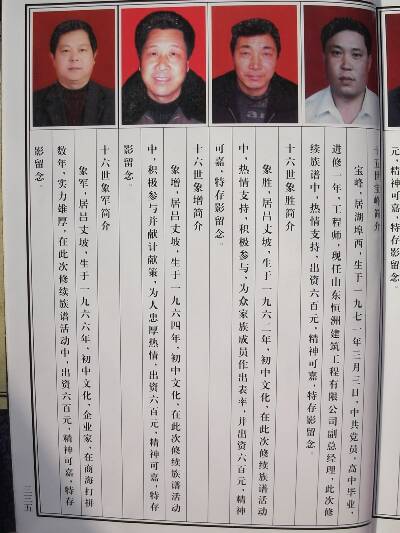 精神可嘉，特存影留念。
十五世宝峰简介
宝峰，居湖埠西，生于一九七一年三月三日，中共党员，高中毕业，
进修一年，工程师，现任山东恒洲建筑工程有限公司副总经理，此次修
续族谱中，热情支持，出资六百元，精神可嘉，特存影留念。
十六世象胜简介
象胜，居吕丈坡，生于一九六二年，初中文化，在此次修续族谱活动
中，热情支持，积极参与，为众家族成员作出表率，并出资六百元，精神
可嘉，特存影留念。
十六世象增简介
象增，居吕丈坡，生于一九六四年，初中文化，在此次修续族谱活动
中，积极参与并献计献策，为人忠厚热情，出资六百元，精神可嘉，特存
影留念。
十六世象军简介
象军，居吕丈坡，生于一九六六年，初中文化，企业家，在商海打拼
数年，实力雄厚，在此次修续族谱活动中，出资六百元，精神可嘉，特存
影留念。
三三五